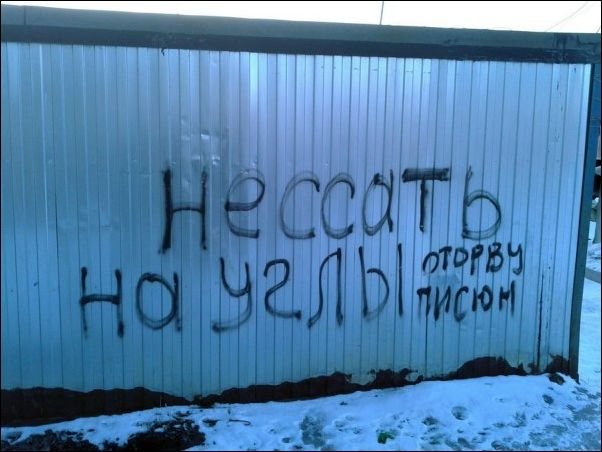 Нессать
на углы
оторву
писюн